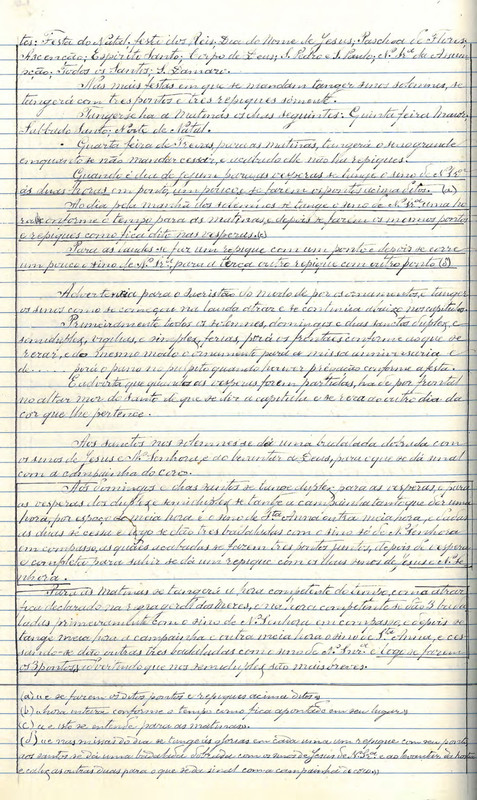 tos: Festa do Natal, festa dos Reis, Dia do Nome de Jesus; Paschoa de Flores
Ascenção; Espirito Santo; Corpo de Deus; S. Pedro e S. Paulo; Nª Srª da Assum-
pção; Todos os Santos; S. Damaso.
Nas mais festas em que se mandam tanger sinos solemnes, se
tangerá com tres pontos e tres repiques sómente.
Tanger-se-ha a Matinas os dias seguintes: Quinta feira Maior,
Sabbado Santo; Noite de Natal.
Quarta feira de Trevas para as matinas, tangerá o sino grande
emquanto se não mandar cessar, e acabado elle não ha repiques.
Quando é dia de jejum para as vesperas se tange o sino de Nª Srª
ás duas horas em ponto, um pouco, e se fazem os pontos acima ditos. (a)
Ao dia pela manhã dos solemnes se tange o sino de Nª Srª uma ho-
ra conforme é tempo para as matinas, e depois se fazem os mesmos pontos
e repiques como fica dito nas vesperas. (c)
Para as laudes se faz um repique com um ponto e depois se corre
um pouco o sino de Nª Srª; para a terça outro repique com outro ponto (d)
Advertencia para o Sacristão do modo de por os ornamentos, e tanger
os sinos como se começou na lauda atraz e se continua
Primeiramente todos os solemnes, domingos e dias sanctos duplex, e
semiduplex, vigilias, e simplex, ferias, porá os frontaes conforme ao que se
rezar, e do mesmo modo o ornamento para a missa
de ... porá o pano no pulpito quando houver prégação conforme a festa.
E advirta que quando as vesperas forem partidas, ha de por frontal
no altar mor do santo de que se diz a capitula e se reza ao outro dia da
cor que lhe pertence.
Aos sanctos nos solemnes se dá uma badalada dobrada com
os sinos de Jesus e Nª Senhora, e ao levantar a Deus, para o que se dá sinal
com a campainha do coro.
Aos domingos e dias santos se tange duplex para as vesperas, e para
as vesperas dos duplex e semiduplex se tanje a campainha tanto que der uma
hora, por espaço de meia hora e o sino de Stª Anna outra meia hora, e dadas
as duas se cessa e logo se dão tres badaladas com o sino só de Nª Senhora
em compasso, as quaes acabadas se fazem tres pontos juntos, depois de vesperas
e completa para sahir se dá um repique com os dous sinos de Jesus e Nª Se-
nhora.
Para as matinas se tangerá a hora competente do tempo, como atraz
fica declarado na regra geral, e na hora competente se dão 3 bada-
ladas primeiramente com o sino de Nª Senhora em compasso, e depois se
tange meia hora a campainha e outra meia hora o sino de Stª Anna, e ces-
sando-se dão outras tres badaladas com o sino de Nª Senrª e logo se fazem
os 3 pontos, advertindo que nos semiduplex são mais breves.
(a) e se fazem os ditos pontos e repiques acima ditos
(b) a hora inteira conforme o tempo como fica apontado em seu lugar
(c) e isto se entende para as matinas.
(d) e nas missas do dia se tange ás glorias em cada uma um repique com seu ponto
nos santos se dá uma badalada dobrada com os sinos de Jesus e de Nª Srª e ao levantar da hostia
e calix as outras duas para o que se dá sinal com a campainha do coro.